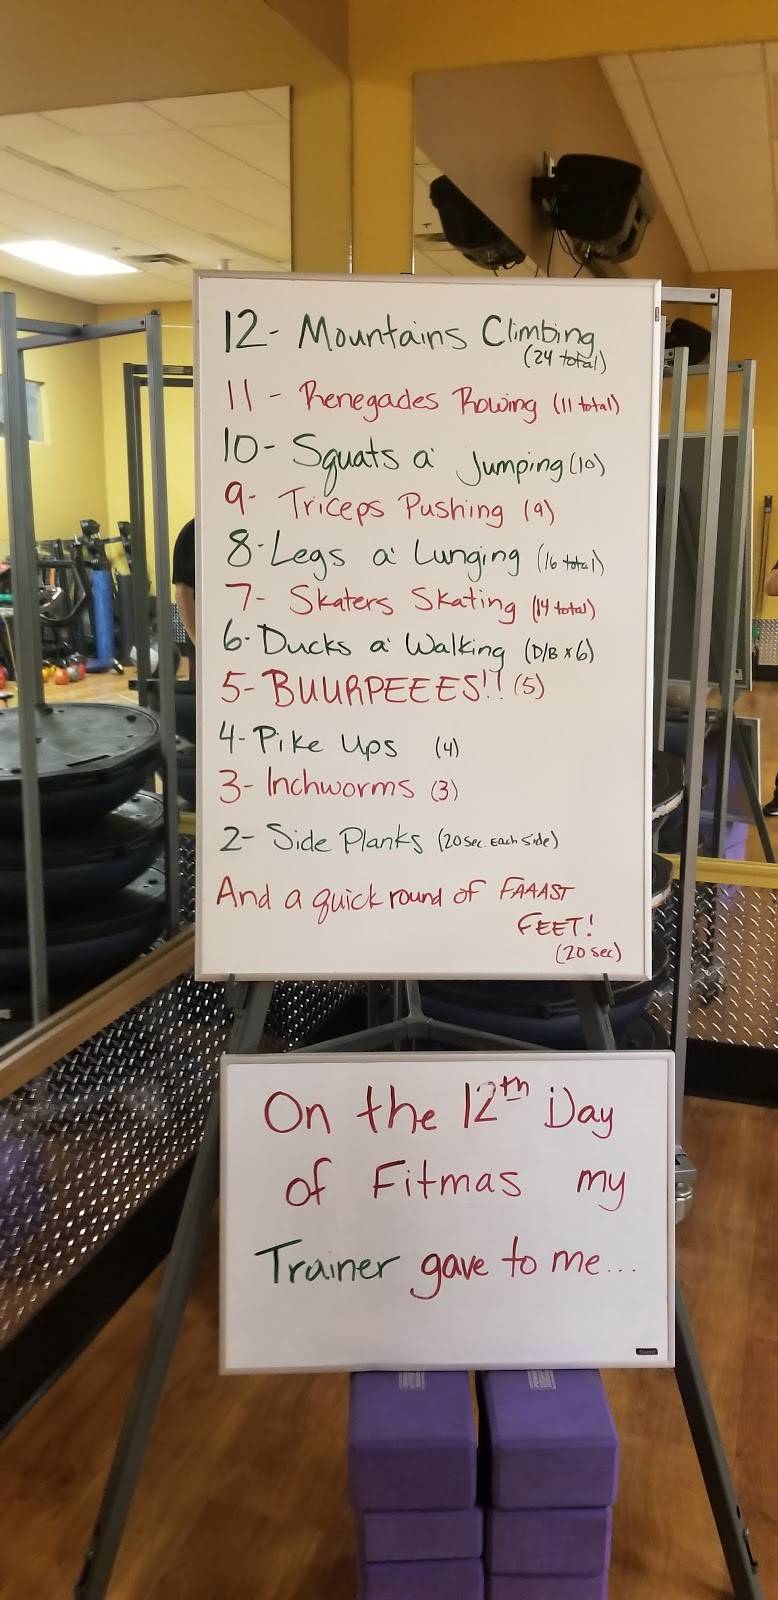 12- Mountains Climbing
(24 total)
11 - Renegades Rowing (11 total)
10- Squats a' Jumping (10)
9- Triceps Pushing (9)
8-Legs a' Lunging (16 total)
7- Skaters Skating (14 total)
6-Ducks a' Walking (D/B x 6)
5-BUURPEEES!! (5)
4-Pike Ups (4)
3-Inchworms (3)
2- Side Planks (20 sec. Each Side)
And a quick round of FAAAST
FEET!
(20 sec)
On the 12th Day
of Fitmas my
Trainer gave to me...